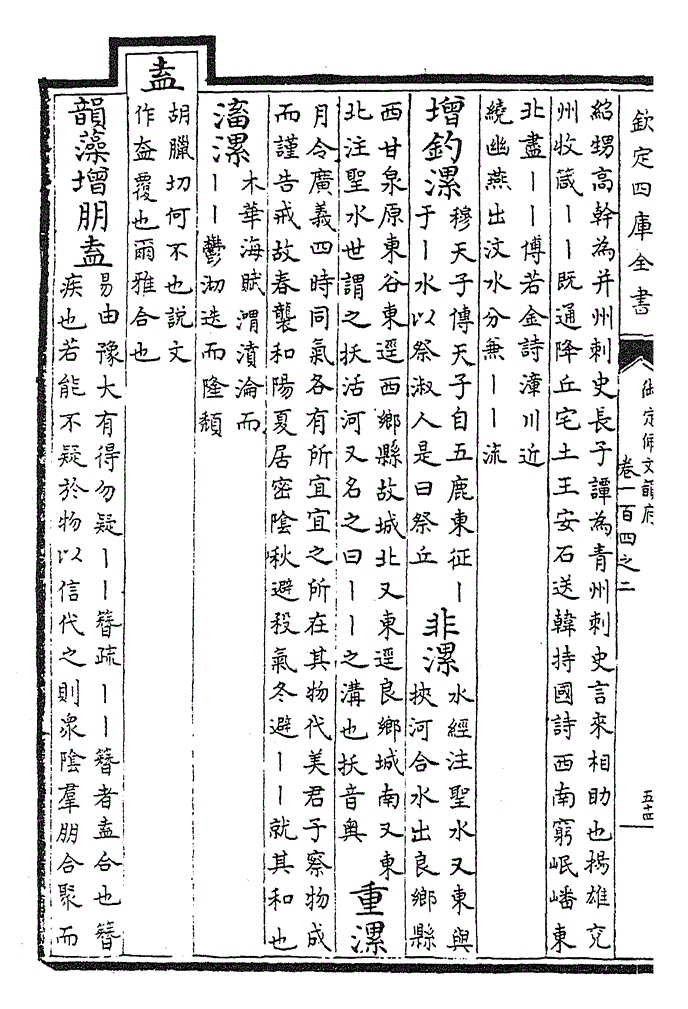 欽定四庫全書
御定佩文韻府
卷一百四之二
五十四
紹甥髙幹為并州刺史長子譚為青州刺史言來相助也楊雄兖
州收箴丨丨既通降丘宅土王安石送韓持國詩西南窮岷嶓東
北盡丨丨傅若金詩漳川近
繞幽燕出汶水分兼丨丨流
增釣漯
穆天子傳天子自五鹿東征丨
于丨水以祭淑人是曰祭丘
非漯
水經注聖水又東與
挾河合水出良鄉縣
西甘泉原東谷東逕西鄉縣故城北又東逕良鄉城南又東
北注聖水世謂之挟活河又名之曰丨丨之溝也挟音奥
重漯
月令廣義四時同氣各有所宜宜之所在其物代美君子察物成
而謹告戒故春襲和陽夏居密陰秋避殺氣冬避丨丨就其和也
滀漯
木華海賦渭濆淪而
丨丨鬱沏迭而隆頽
盍
胡臘切何不也説文
作盇覆也爾雅合也
韻藻增朋盍
易由豫大有得勿疑丨丨簪疏丨丨簪者盍合也簪
疾也若能不疑於物以信代之則衆陰羣朋合聚而